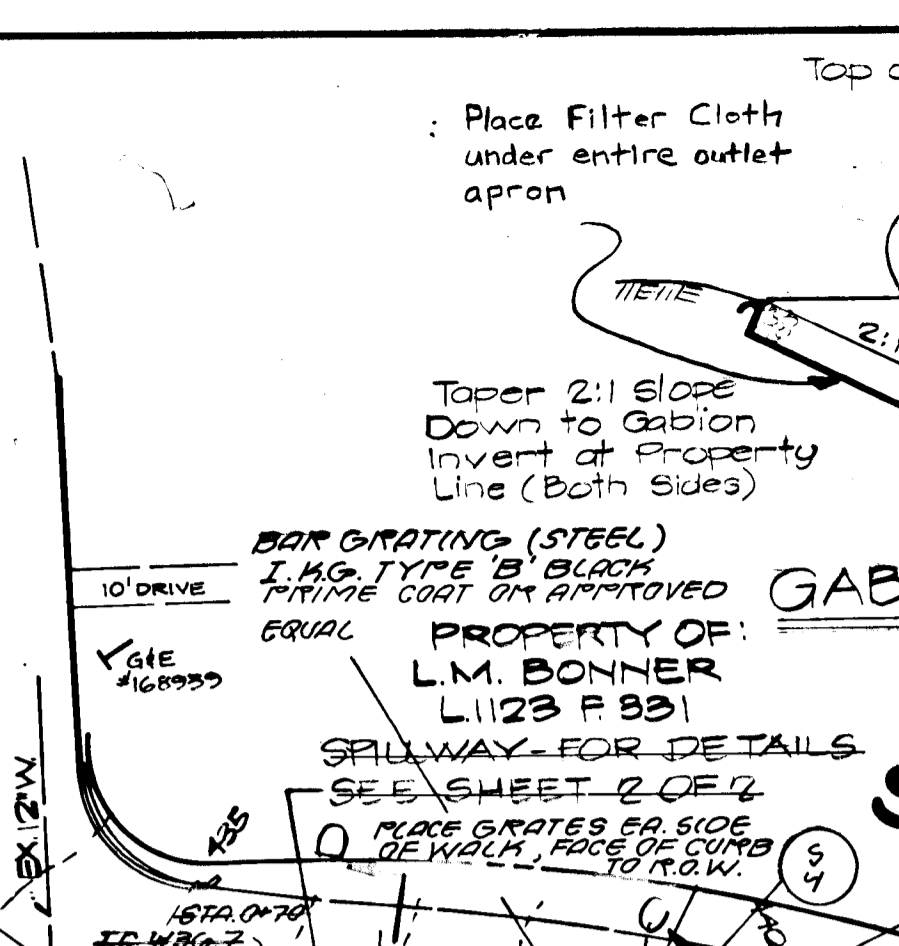 Top
: Place Filter Cloth
under entire outlet
apron
2:1
Taper 2:1 Slope
Down to Gabion
Invert at Property
Line (Both Sides)
BAR GRATING (STEEL)
I.K.G. TYPE 'B' BLACK
PRIME COAT OR APPROVED
EQUAL
10' DRIVE
GAB
PROPERTY OF:
L.M. BONNER
L.1123 F. 331
G&E
#168939
SPILLWAY-FOR DETAILS
SEE SHEET 2 OF 2
EX. 12" W.
435
PLACE GRATES EA. SIDE
OF WALK, FACE OF CURB
TO R.O.W.
S
4
STA. 0+70